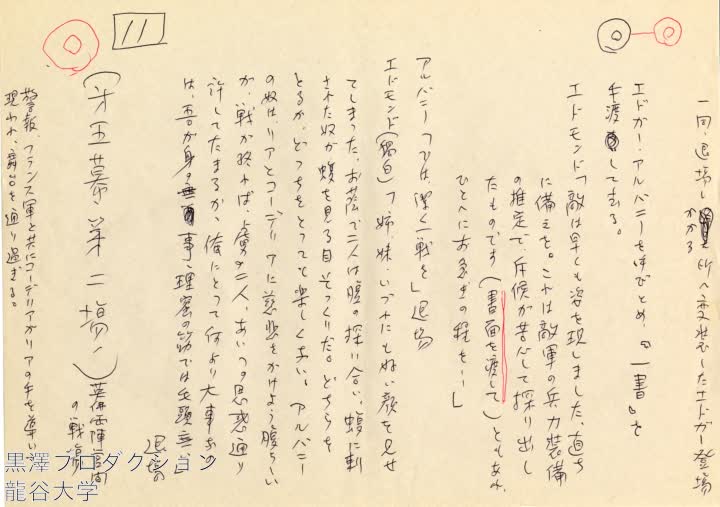 11
一同、退場しかゝる所へ変装したエドガー登場
エドガー、アルバニーを呼びとめ、『一書』を
手渡して去る。
エドモンド「敵は早くも姿を現しました、直ち
に備えを。これは敵軍の兵力装備
の推定で、斥候が苦心して探り出し
たものです（書面を渡して）ともあれ、
ひとへにお急ぎの程を…」
アルバニー「では、潔く一戦を」退場
エドモンド（独白）「姉、妹、いづれにも
てしまった、お蔭で二人は腹の探り合い、蝮に刺
された奴が蝮を見る目そっくりだ。どちらを
とるか、どっちをとっても楽しくない。アルバニー
の奴は、リアとコーデリアに慈悲をかけよう腹らしい
が、戦が終れば、虜の二人、あいつの思惑通り
許してたまるか、俺にとって何より大事なの
は、吾が身の無事、理窟の筋では
退場
（第五幕第二場）
の戦場
警報、フランス軍と共にコーデリアがリアの手を導い
現われ、舞台を通り過ぎる。
黒澤プロダクション
龍谷大学